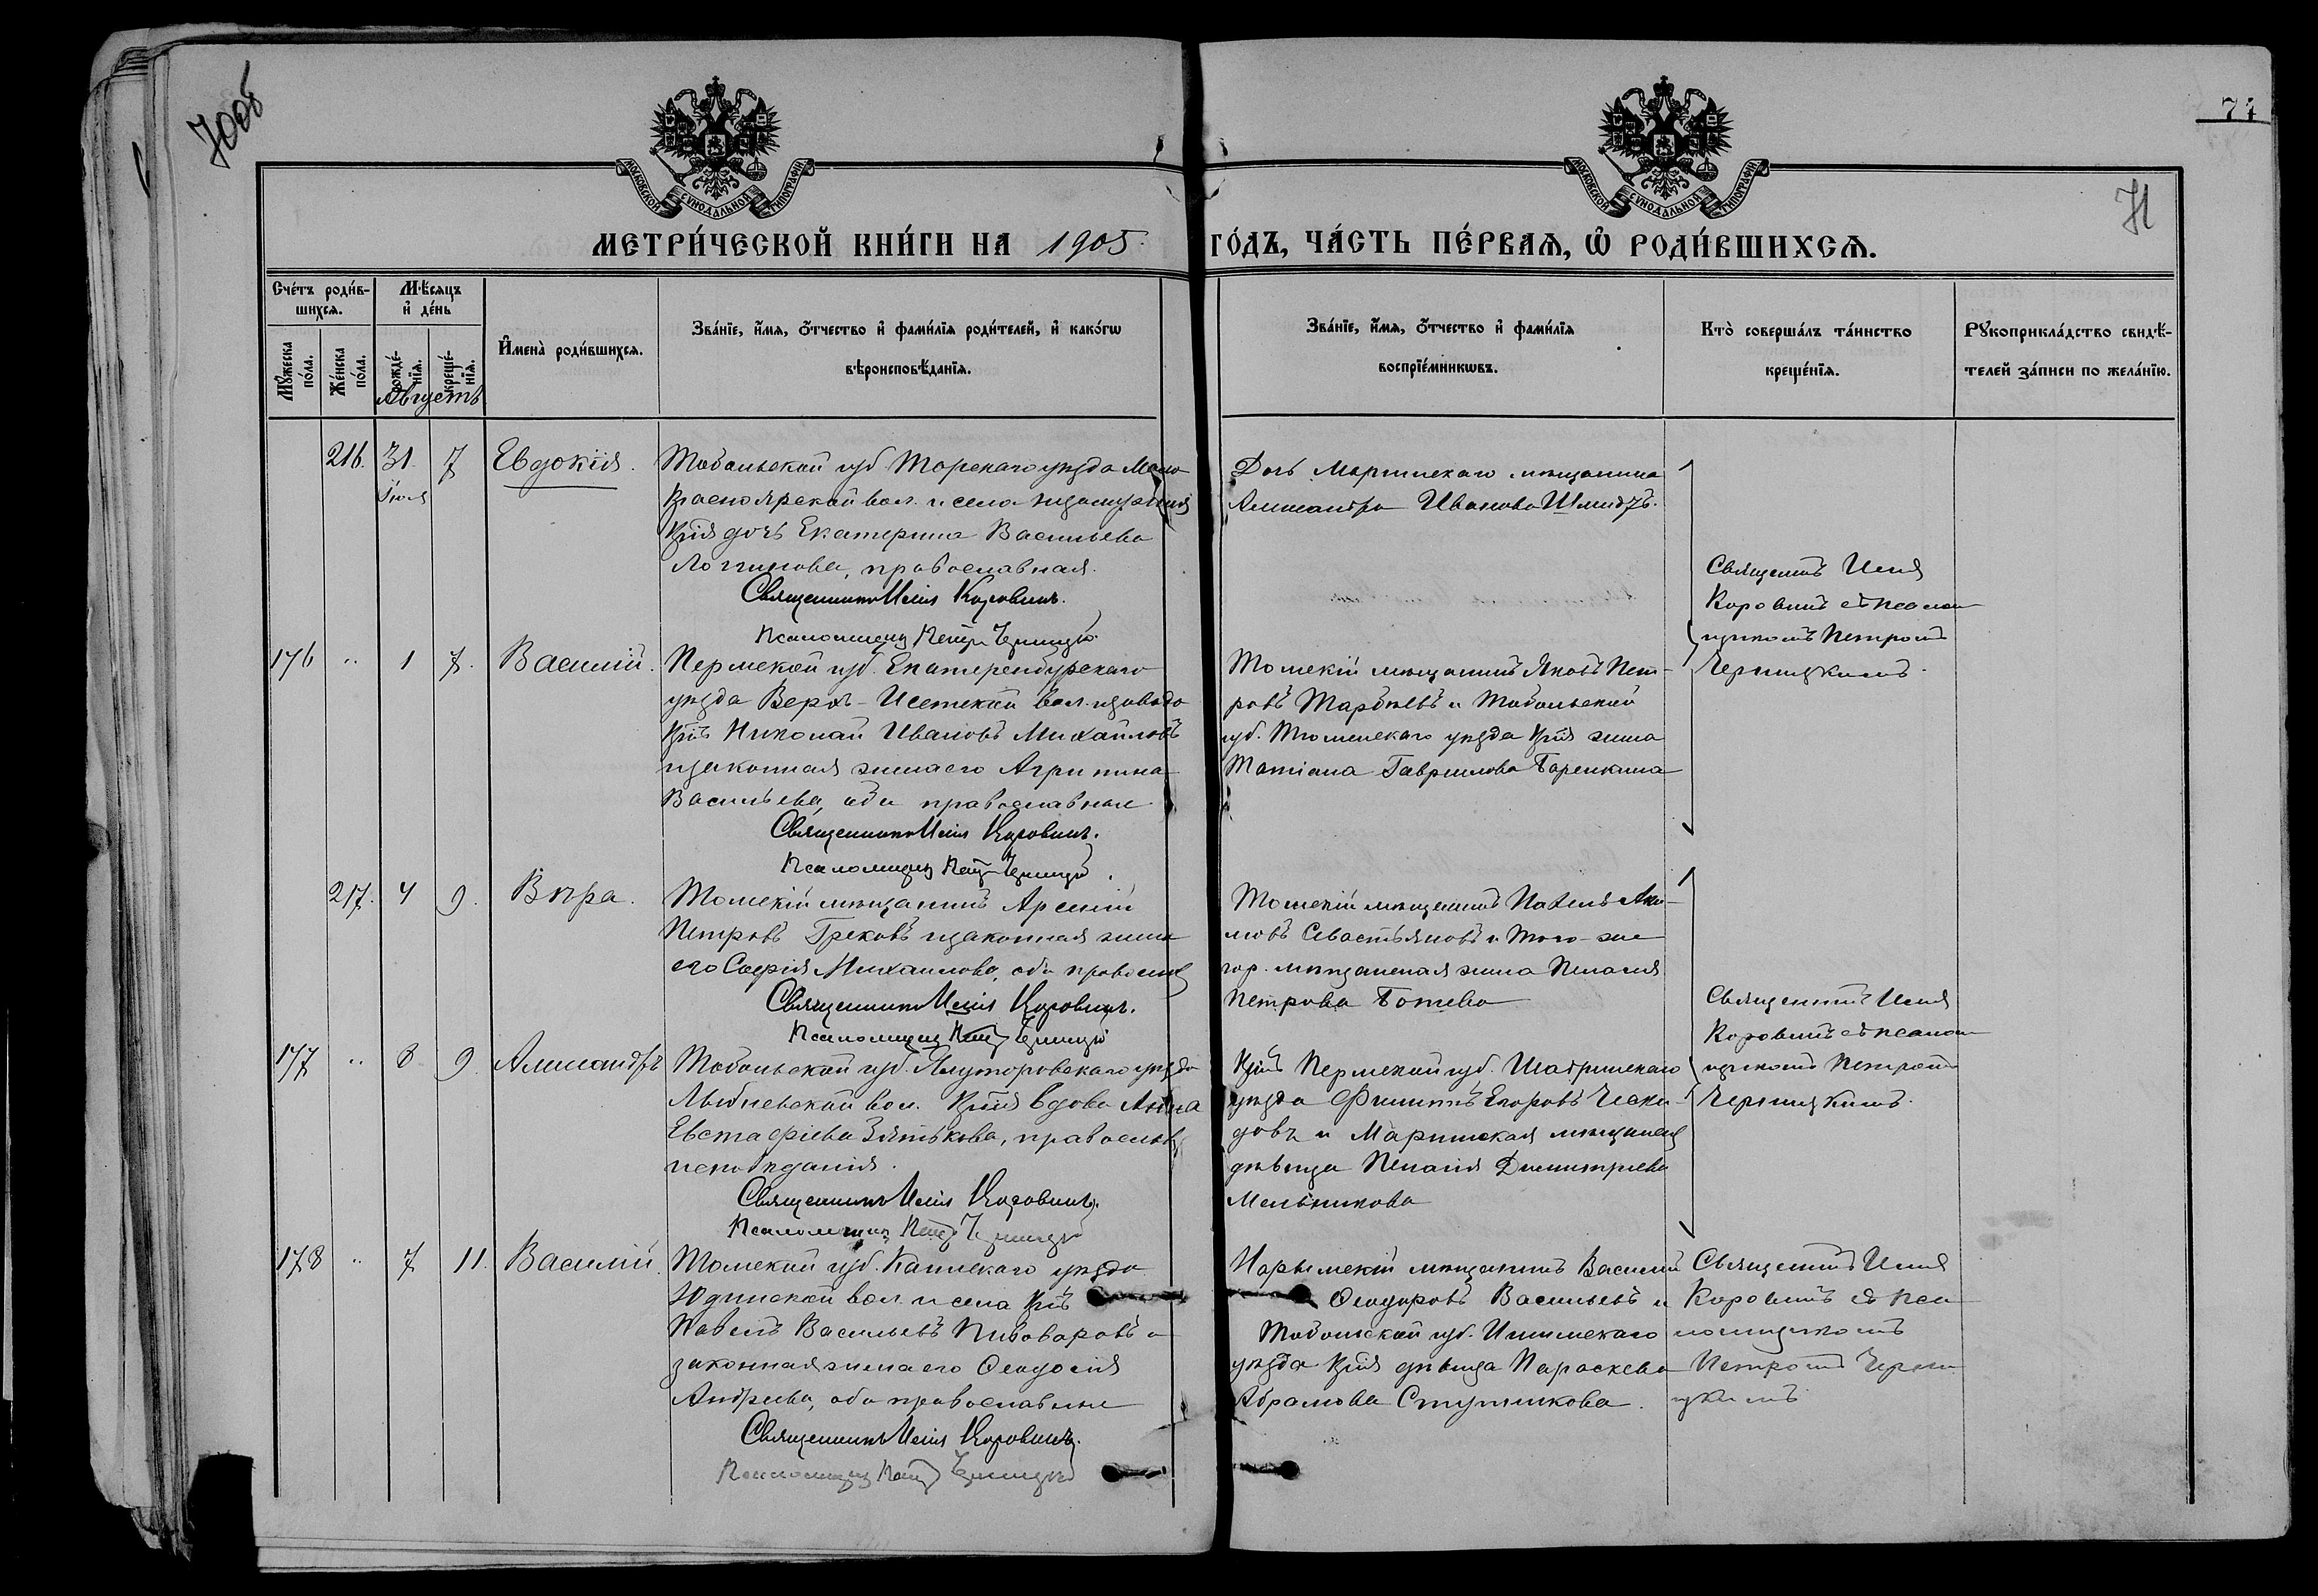 70об
74
71
МОСКОВСКОЙ СѴНОДАЛЬНОЙ ТИПОГРАФІИ
МОСКОВСКОЙ СѴНОДАЛЬНОЙ ТИПОГРАФІИ
МЕТРИ́ЧЕСКОЙ КНИ́ГИ НА 1905 ГО́ДЪ, ЧА́СТЬ ПЕ́РВАЯ, Ѽ РОДИ́ВШИХСЯ.
Сче́тъ роди́в-
шихся.
Мѣсяцъ
и҆ де́нь
Мꙋ́жеска по́ла.
Же́нска по́ла.
рожде́-
нїя.
креще́-
нїя.
Августъ
И҆мена̀ роди́вшихся.
Зва́нїе, и҆́мя, ѻ҆́тчество и҆ фами́лїя роди́телей, и҆ како́гѡ
вѣроисповѣ́данїя.
Зва́нїе, и҆́мя, ѻ҆́тчество и҆ фами́лїя
воспрїе́мникѡвъ.
Кто̀ соверша́лъ та́инство
креще́нїя.
Рꙋкоприкла́дство свидѣ́-
телей за́писи по жела́нїю.
216. 31. 7 Евдокія.
Іюля
Тобольской губ. Тарскаго уѣзда Мало
Красноярской вол. и села
Кр꙼ія дочь Екатерина Васильева
Логинова, православная.
Священникъ Исаія Коровинъ.
Псаломщикъ Петръ Черницкій.
Дочь Маріинскаго мѣщанина
Александра Иванова Шмидтъ.
Священникъ Исаія
Коровинъ съ псалом
щикомъ Петромъ
Черницкимъ.
176 " 1 7. Василій.
Пермской губ. Екатеренбурскаго
уѣзда Верхъ-Исетской вол. и завода
Кр꙼нъ Николай Ивановъ Михайловъ
и законная жена его Агрипина
Васильева, оба православные
Священникъ Исаія Коровинъ.
Псаломщикъ Петръ Черницкій.
Томскій мѣщанинъ Яковъ Пет-
ровъ Тарбѣевъ и Тобольской
губ. Тюменскаго уѣзда Кр꙼ія жена
Татіана Гаврилова Баренкина
217. 4 9. Вѣра.
Томскій мѣщанинъ Арсеній
Петровъ Грековъ и законная жена
его Софія Михаилова, оба правосл
Священникъ Исаія Коровинъ.
Псаломщикъ Петръ Черницкій
Томскій мѣщанинъ Павелъ Аки-
мовъ Севастьяновъ и того-же
гор. мѣщанская жена Пелагія
Петрова Ботева
Священникъ Исаія
Коровинъ съ псалом
щикомъ Петромъ
Черницкимъ.
177 " 8 9. Александръ
Тобольской губ. Ялуторовскаго уѣзда
вол. Кр꙼ія вдова Анна
Евстафіева Зятькова, православ
исповѣданія.
Священникъ Исаія Коровинъ.
Псаломщикъ Петръ Черницкій
Кр꙼нъ Пермской губ. Шадринскаго
уѣзда Филиппъ Егоровъ
и Маріинская мѣщанская
дѣвица Пелагія Димитріева
Мельникова
178 " 7 11. Василій.
Томской губ. Каинскаго уѣзда
Юдинской вол. и села Кр꙼нъ
Павелъ Васильевъ Пивоваровъ и
законная жена его Ѳеодосія
Андреева, оба православные
Священникъ Исаія Коровинъ.
Псаломщикъ Петръ Черницкій
Нарымскій мѣщанинъ Василій
Ѳеодоровъ Васильевъ и
Тобольской губ. Ишимскаго
уѣзда Кр꙼ія дѣвица Параскева
Абрамова Ступникова.
Священникъ Исаія
Коровинъ съ пса
ломщикомъ
Петромъ Черни
цкимъ.